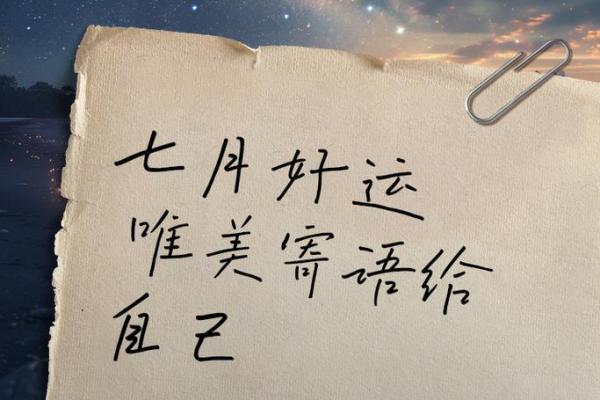 七月好运
唯美寄语给
自己